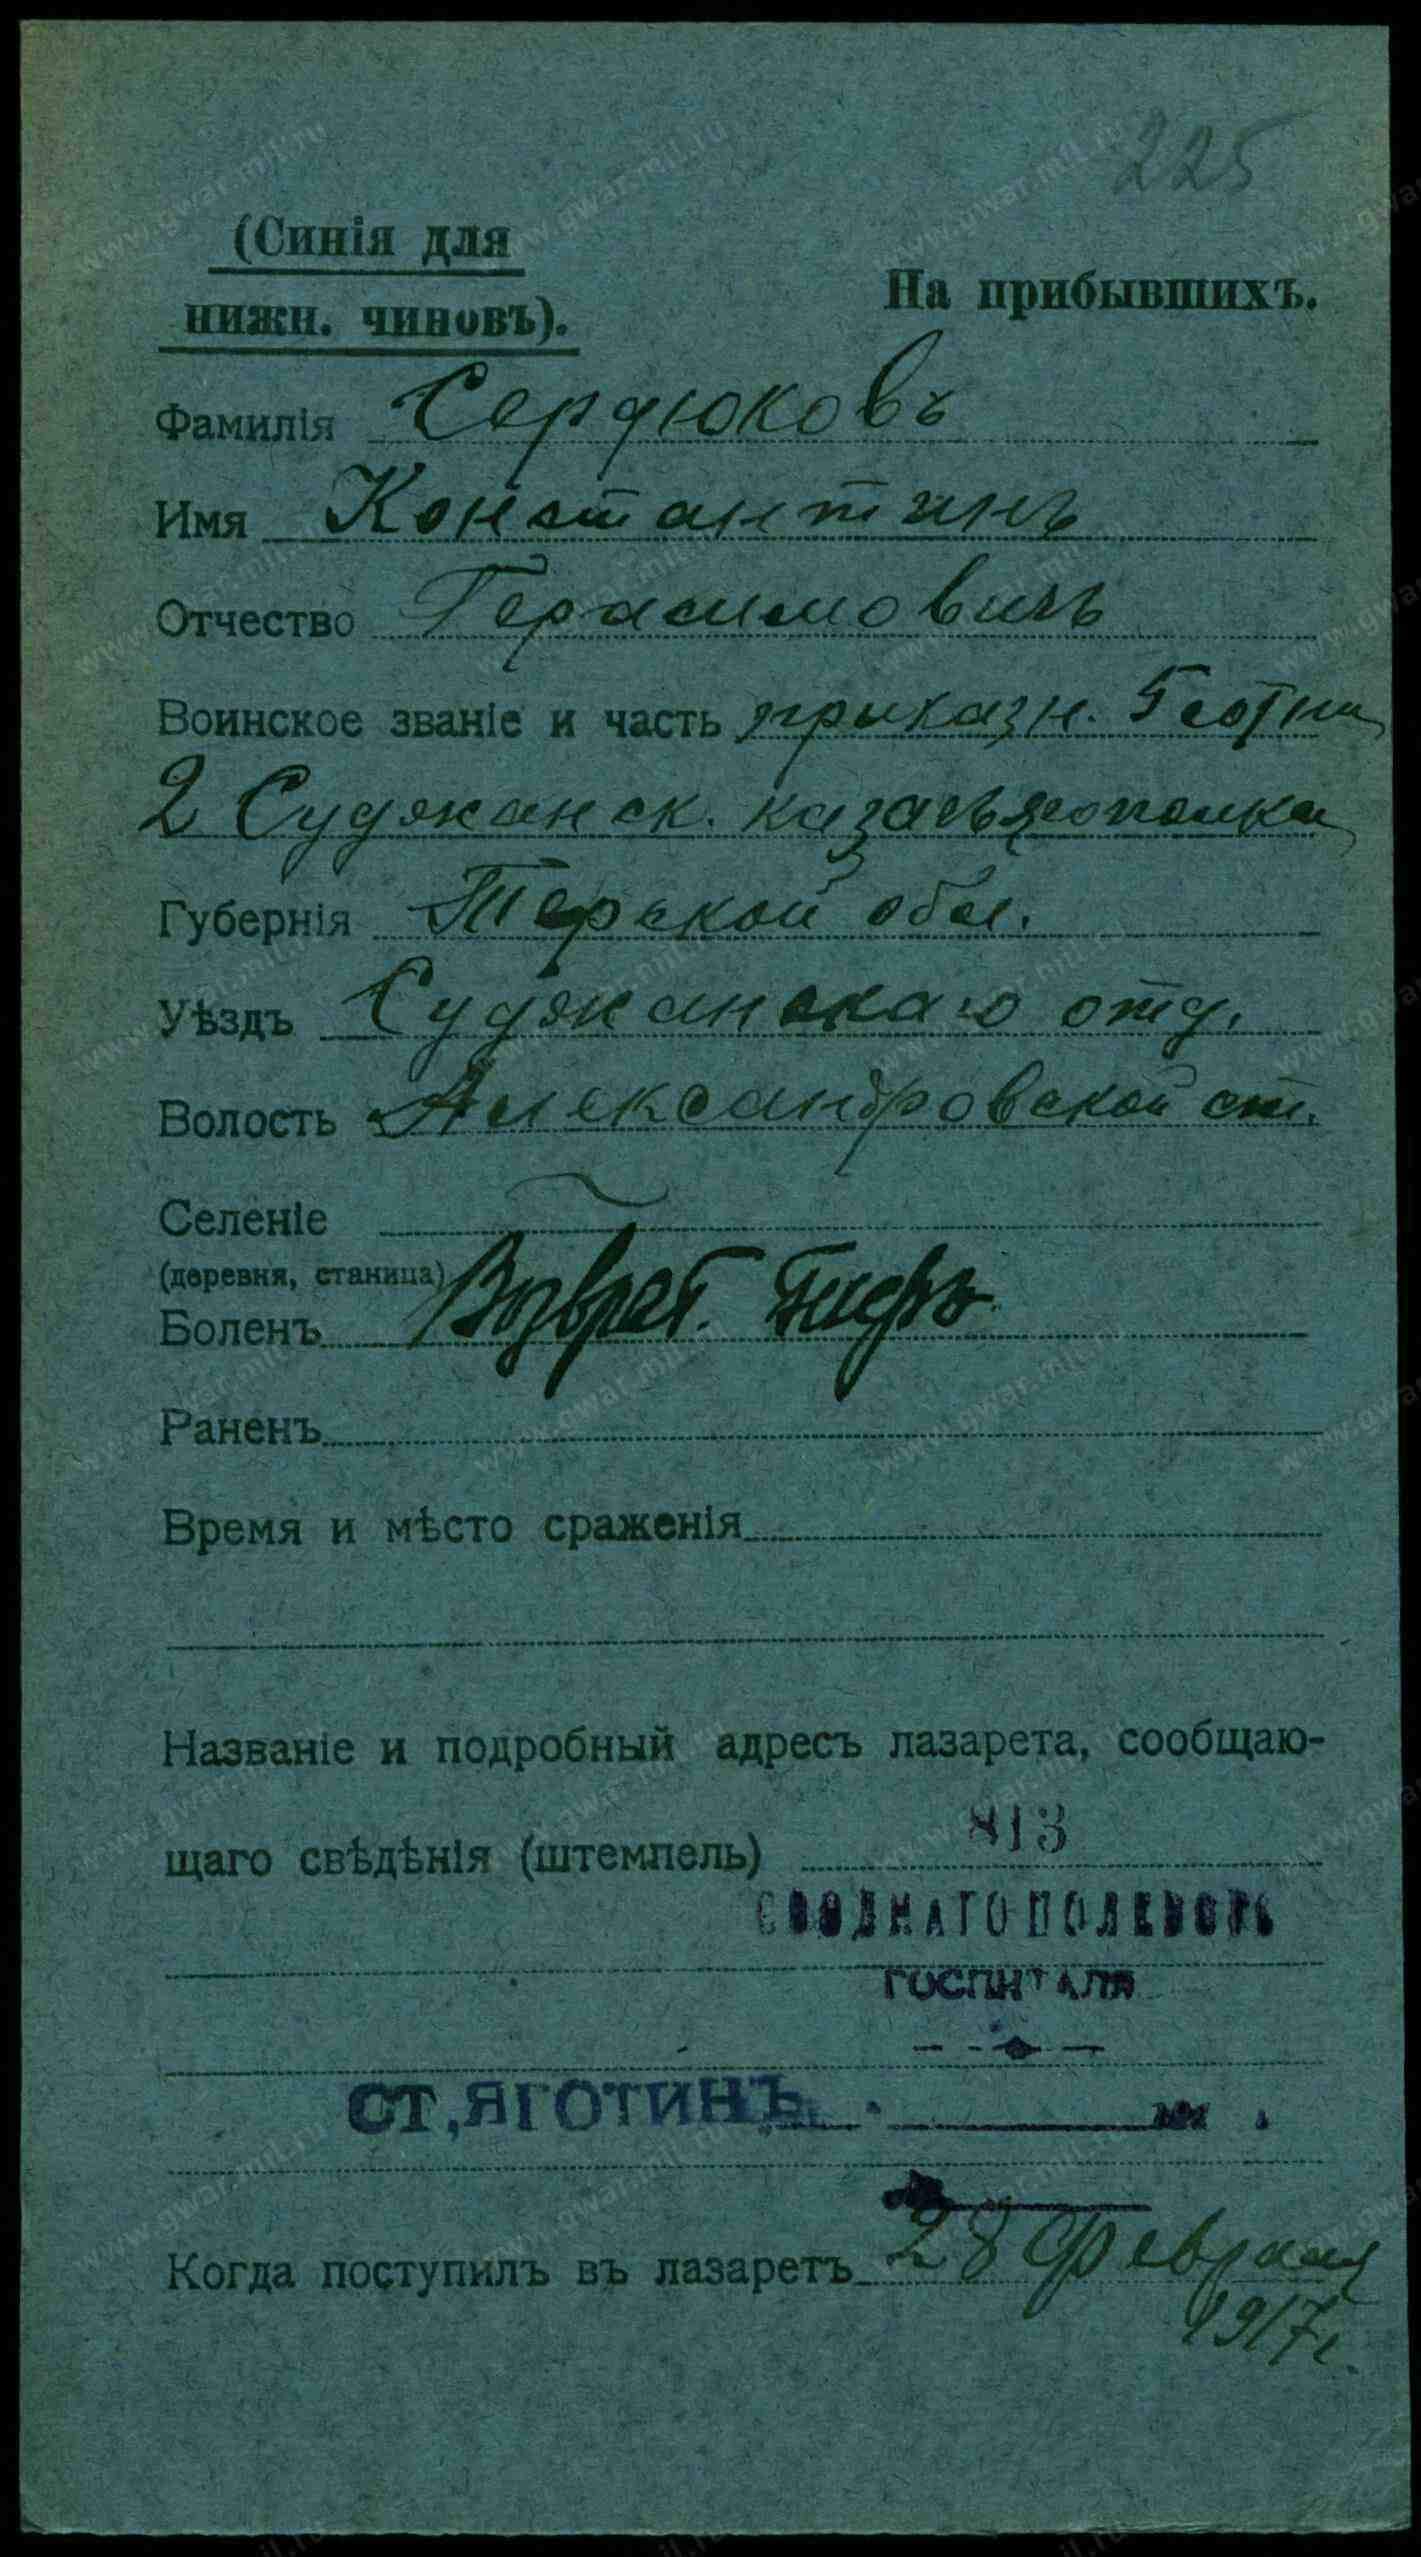 225
(Синія для
нижн. чиновъ).
На прибывшихъ.
Фамилія Сердюковъ
Имя Константинъ
Отчество Герасимовичъ
Воинское званіе и часть приказн. 5 сотни
2 Сунженск. казачьяго полка
Губернія Терской обл.
Уѣздъ Сунженскаго отд.
Волость Александровской ст.
Селеніе
(деревня, станица)
Боленъ Возврат. тифъ
Раненъ
Время и мѣсто сраженія
Названіе и подробный адресъ лазарета, сообщаю-
щаго свѣдѣнія (штемпель) 813
СВОДНАГО ПОЛЕВОГО
ГОСПИТАЛЯ
СТ, ЯГОТИНЪ
Когда поступилъ въ лазаретъ 28 февраля
1917 г.